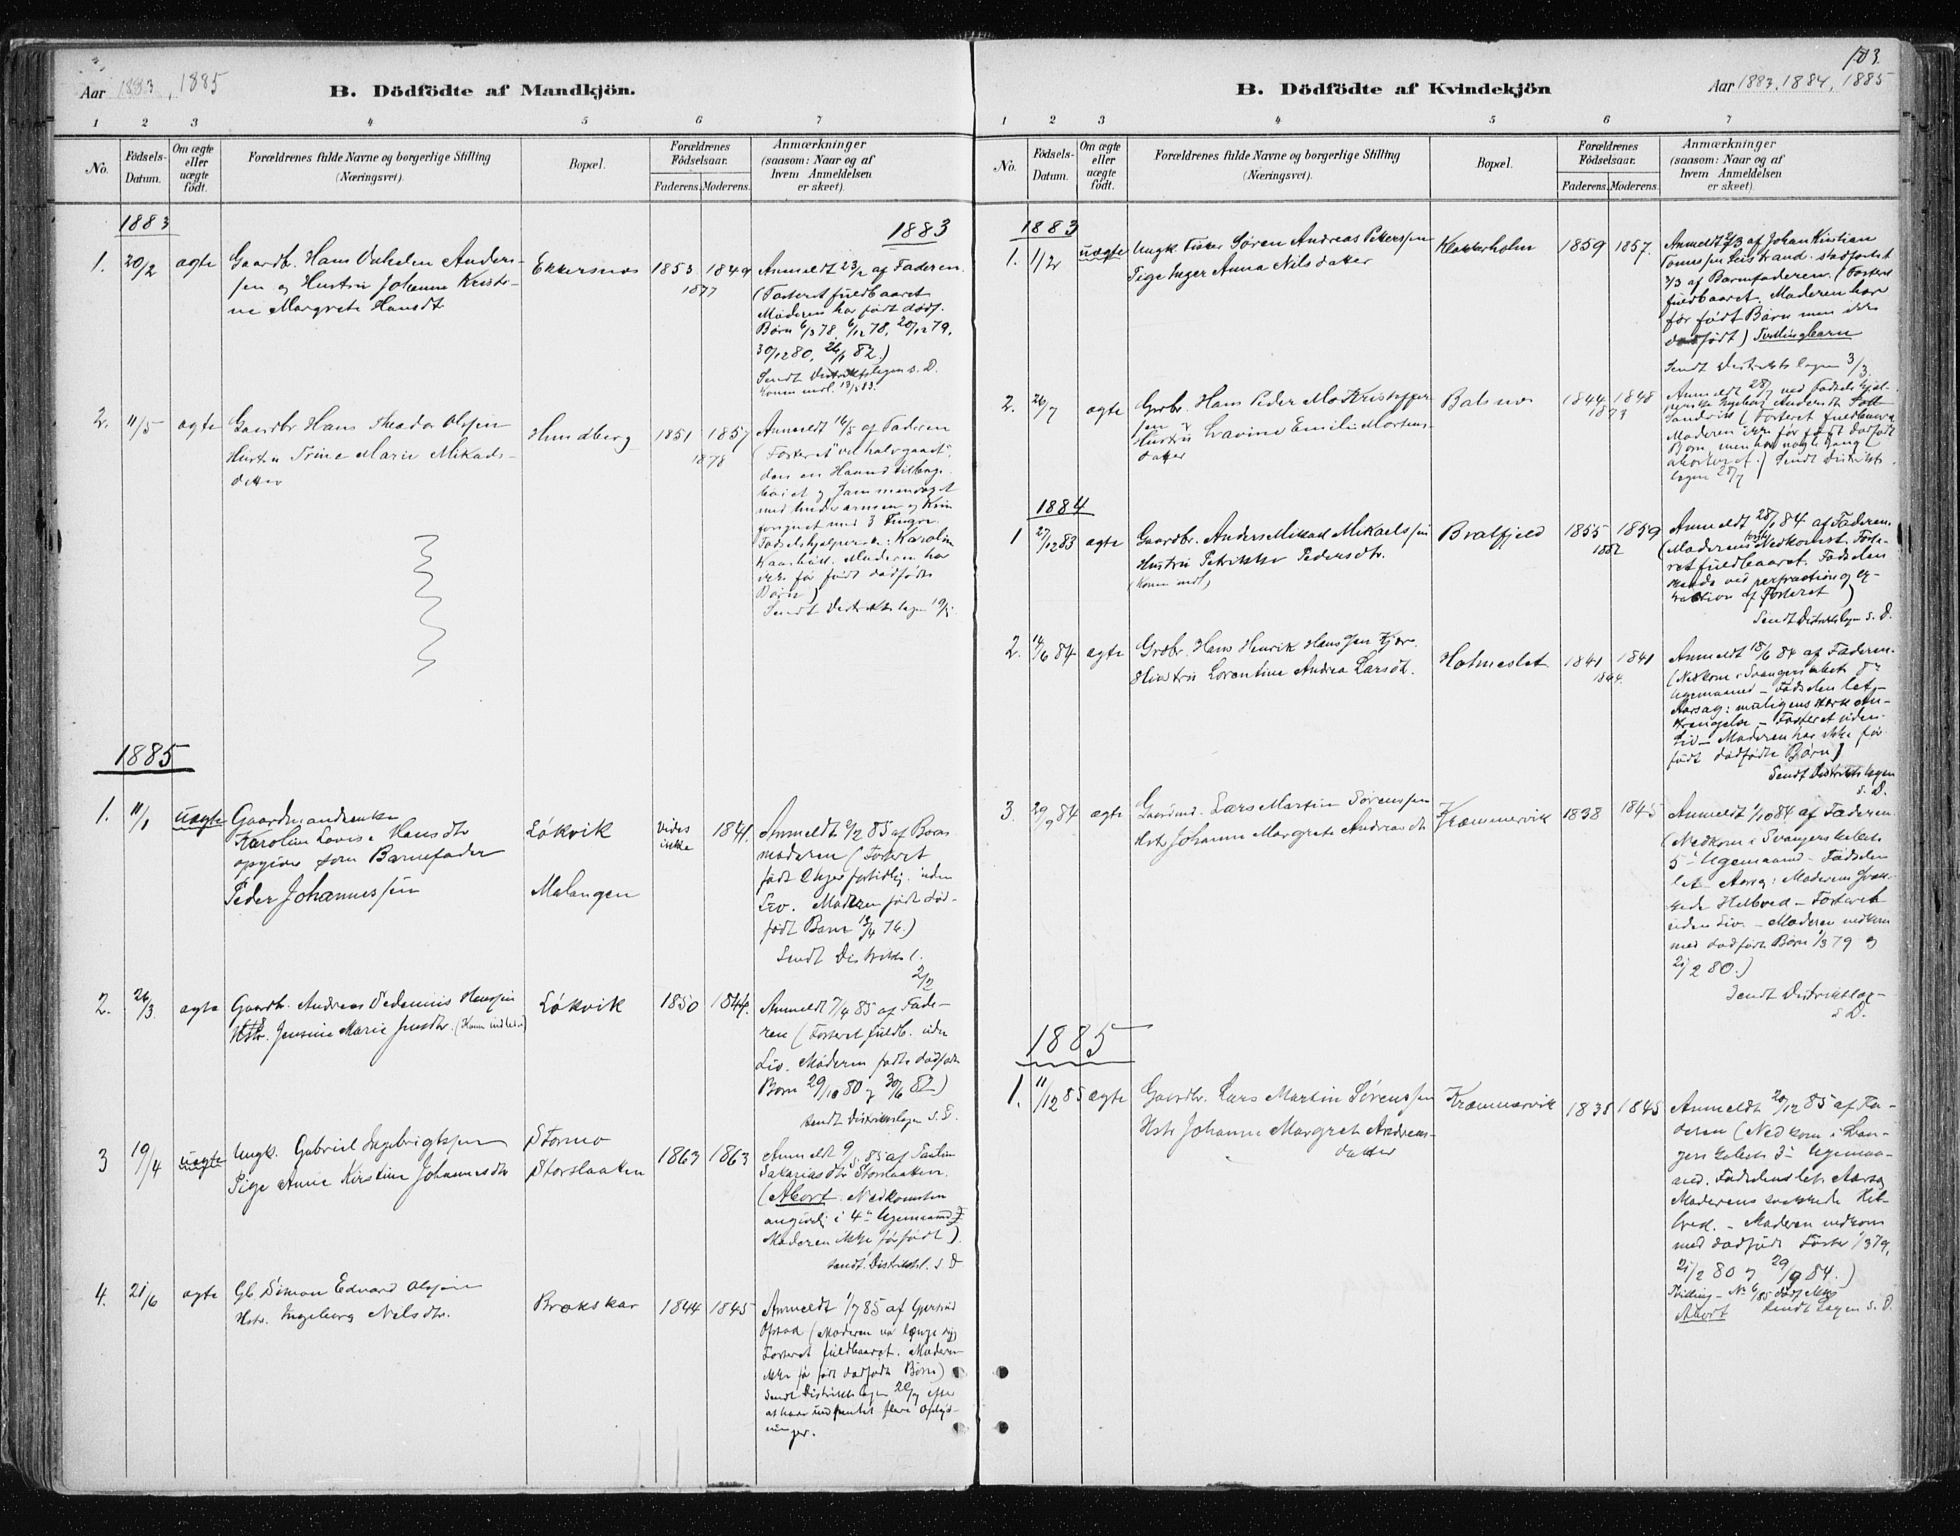 Aar 1883, 1885
B. Dödfödte af Mandkjön.
1 2 3 4 5 6 7
No.
Födsels-
Datum.
Om ægte
eller
uægte
født.
Forældrenes fulde Navne og borgerlige Stilling
(Næringsvei).
Bopæl.
Forældrenes
Födselsaar.
Faderens. Moderens.
Anmærkninger
(saasom: Naar og af
hvem Anmeldelsen
er skeet).
1883
1883
1. 20/2 ægte
Gaardbr. Hans Vilhelm Anders-
sen og Hustru Johanne Kristi-
ne Margrete Hansdt
Ekkersnes
1853 1849
1877
Anmeldt 23/2 af Faderen.
(Fosteret fuldbaaret
Moderen har født dødf.
Børn 6/3 78, 6/12 78, 20/12 79,
30/12 80, 82.)
Sendt Distriktslægen s. D.
2. 11/5 ægte
Gaardbr Hans Theodor Olsen
Hustru Trine Marie Mikals-
datter
Hundberg
1851 1857
1878
Anmeldt 16/5 af Faderen
(Fosteret "vel halvgaaet",
den en Haand tilbage-
bøiet og sammenvoxet
med Underarmen og Kun
forsynet med 3 Fingre.
Fødselshjælperske: Karolin
Moderen har
ikke før født dødfødte
Børn)
Sendt Distriktslægen 19/5
1885
1. 11/1 uægte
Gaardmandsenke
Karoline Lovise Hansdtr
opgiver som Barnefader
Peder Johannessen
Løkvik
Malangen
vides
ikke
1841.
Anmeldt 2/2 85 af Barne-
moderen (Fosteret
født Uger fortidlig. uden
Liv. Moderen født død-
født Barn 13/4 76.)
Sendt Distriktsl.
2/2
2. 26/3 ægte
Gaardbr. Andreas Hanssen
Hstr. Jensine Marie Jensdtr.
Løkvik
1850 1844.
Anmeldt 7/4 85 af Fade-
ren (Fosteret fuldb. uden
Liv. Moderen fødte dødfødte
Børn 29/10 80 og 30/6 82)
Sendt Distriktslægen s. D.
3 19/4 uægte
Ungk. Gabriel Ingebrigtssen
Pige Anne Kirstine Johannesdtr
Stormo
Storslaaken
1863 1863
Anmeldt 9/5 85 af Paulin
Sakariasdtr Storslaaken.
(Abort. Nedkomsten
angivlig i 4de Ugemaaned
Moderen ikke før født).
Sendt Distriktsl. s D
4. 21/6 ægte
Gb. Simon Edvard Olsen
Hstr. Ingeborg Nilsdtr.
Brækskar
1844 1845
Anmeldt 1/7 85 af
(Moderen var længe syg
Fosteret fuldbaaret. Moderen
ikke før født dødfødte Børn)
Sendt Distriktslægen 20/7 efter
at have indhentet flere Oplys-
ninger.
103.
B. Dödfödte af Kvindekjön
Aar 1883, 1884, 1885
1 2 3 4 5 6 7
No.
Födsels-
Datum.
Om ægte
eller
uægte
født.
Forældrenes fulde Navne og borgerlige Stilling
(Næringsvei).
Bopæl.
Forældrenes
Födselsaar.
Faderens. Moderens.
Anmærkninger
(saasom: Naar og af
hvem Anmeldelsen
er skeet).
1883
1. 1/2 uægte
Ungk. Fisker Søren Andreas Petterssen
Pige Inger Anna Nilsdatter
Klokkerholm
1859 1857.
Anmeldt 2/3 af Johan Kristian
Tomessen Leistrand. stadfæstet
af Barnefaderen. (Fosteret
fuldbaaret. Moderen har
før født Børn men ikke
dødfødt) Tvillingbarn
Sendt Distriktslægen 3/3.
2. 26/7 ægte
Grbr. Hans Peder Mo Kristoffer-
sen &
Hustru Lavine Emilie Mortens-
datter
Balsnes
1844 1848
1873
Anmeldt 28/7 ved Fødselshjæl-
perske Ingeborg Andersdt
(Fosteret fuldbaaret
Moderen ikke før født dødfødt
Børn, men har nogle Gang
aborteret.) Sendt Distrikts
lægen 28/7
1884
1 27/12 83 ægte
Gaardbr. Anders Mikal Mikaelssen
Hustru Petrikke Pedersdtr.
Bratfjeld
1855 1859
1882
Anmeldt 28/1 84 af Faderen.
(Moderens første Nedkomst. Foste-
ret fuldbaaret. Fødselen
skede ved perforation og ex-
traction af Fosteret)
Sendt Distriktslægen s. D.
2. 14/6 84 ægte
Grdbr. Hans Henrik Hanssen Kjær
Hustru Lorentine Andrea Larsdt.
Holmeslet
1841 1841
1864.
Anmeldt 18/6 84 af Faderen.
(Nedkom i Svangerskabets 8de
Ugemaaned – Fødselen let –
Aarsag: muligens stærk An-
strengelse – Fosteret uden
Liv – Moderen har ikke før
født dødfødte Børn)
Sendt Distriktslægen
s. D.
3. 29/9 84 ægte
Gaardmd. Lars Martin Sørenssen
Hstr Johanne Margrete Andreasdt
Kræmmervik
1838 1845
Anmeldt 1/10 84 af Faderen.
(Nedkom i Svangerskabets
5te Ugemaaned – Fødselen
let Aarsag: Moderens svæk-
kede Helbred – Fosteret
uden Liv. – Moderen nedkom
med dødfødte Børn 1/3 79 og
21/2 80.)
Sendt Distriktslæg-
s. D.
1885
1. 11/12 85 ægte
Gaardbr. Lars Martin Sørenssen
Hstr Johanne Margret Andreas-
datter
Kræmmervik
1835 1845
Anmeldt 20/12 85 af Fa-
deren (Nedkom i Svan-
gerskabets Ugemaa-
ned. Fødselen let. Aarsag
Moderens svækkede Hel-
bred. – Moderen nedkom
med dødfødt Foster 1/3 79,
21/2 80 og 29/9 84.)
Abort Sendt Lægen s. D.